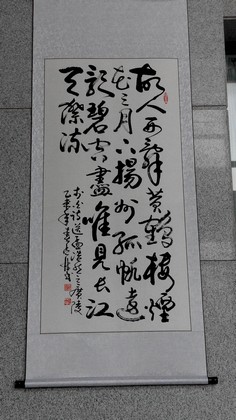 故人西辭黃鶴樓煙
花三月下揚州孤帆遠
影碧空盡唯見長江
天際流
李白詩送孟浩然之廣陵